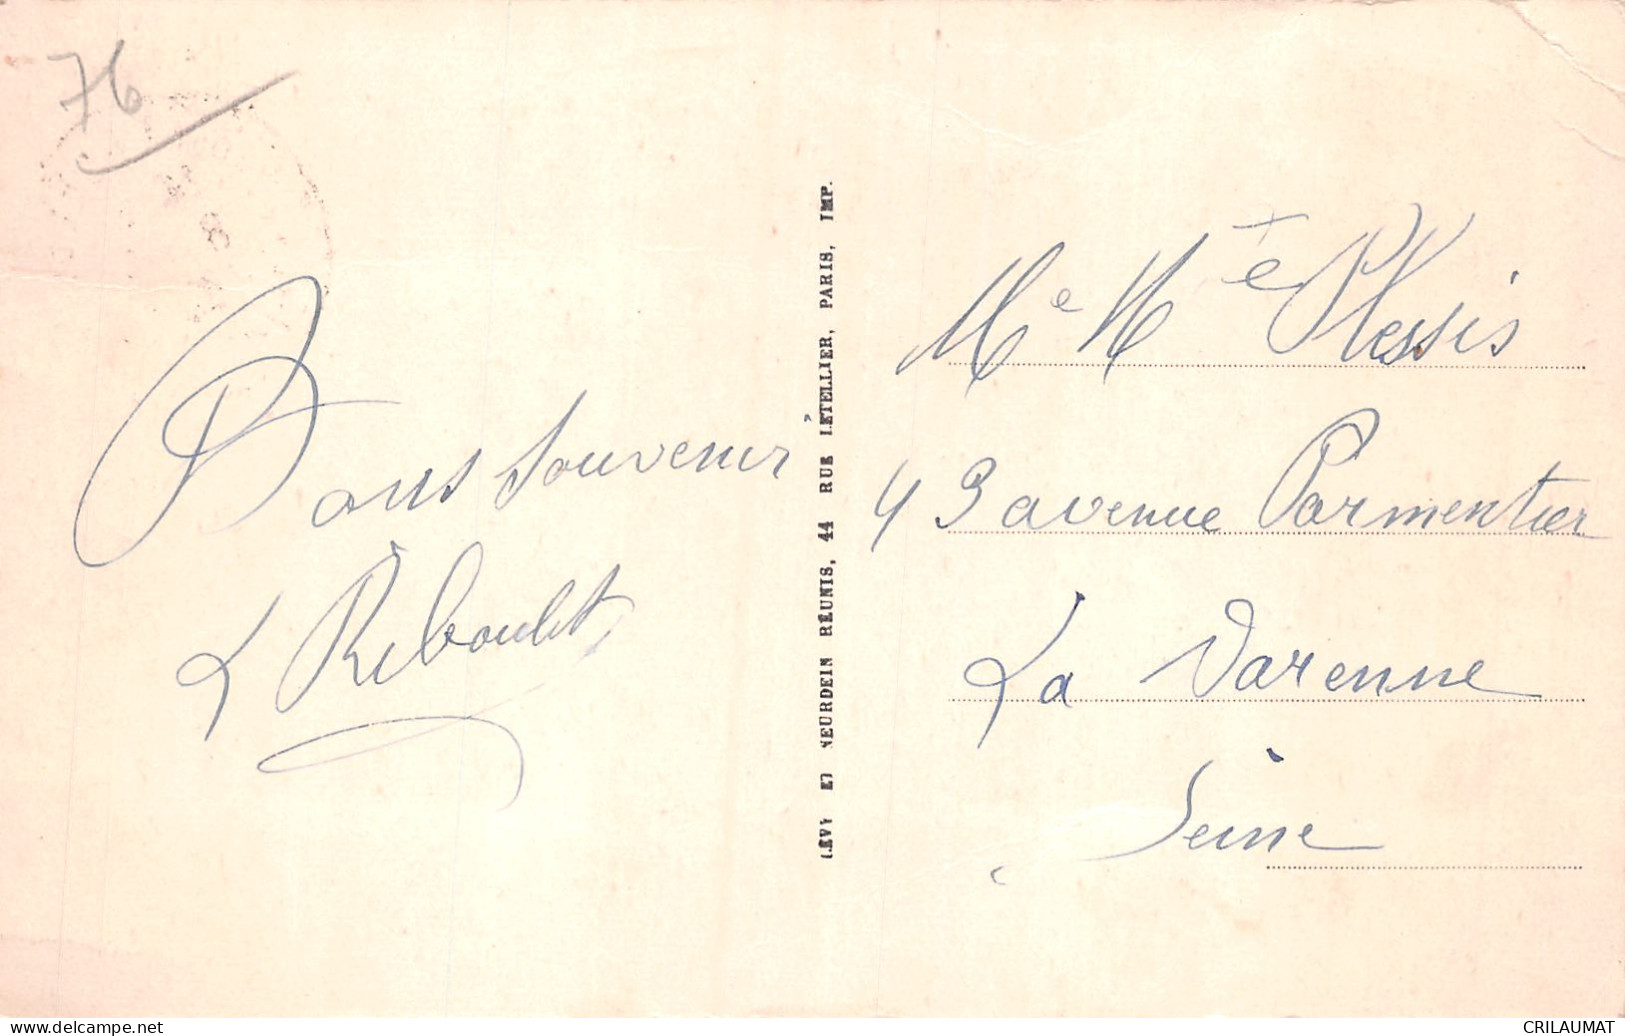 76
Bons souvenirs
L Riboulet
LÉVY ET NEURDEIN RÉUNIS, 44 RUE LETELLIER, PARIS, IMP.
Me Plessis
43 avenue Parmentier
La Varenne
Seine
www.delcampe.net
CRILAUMAT